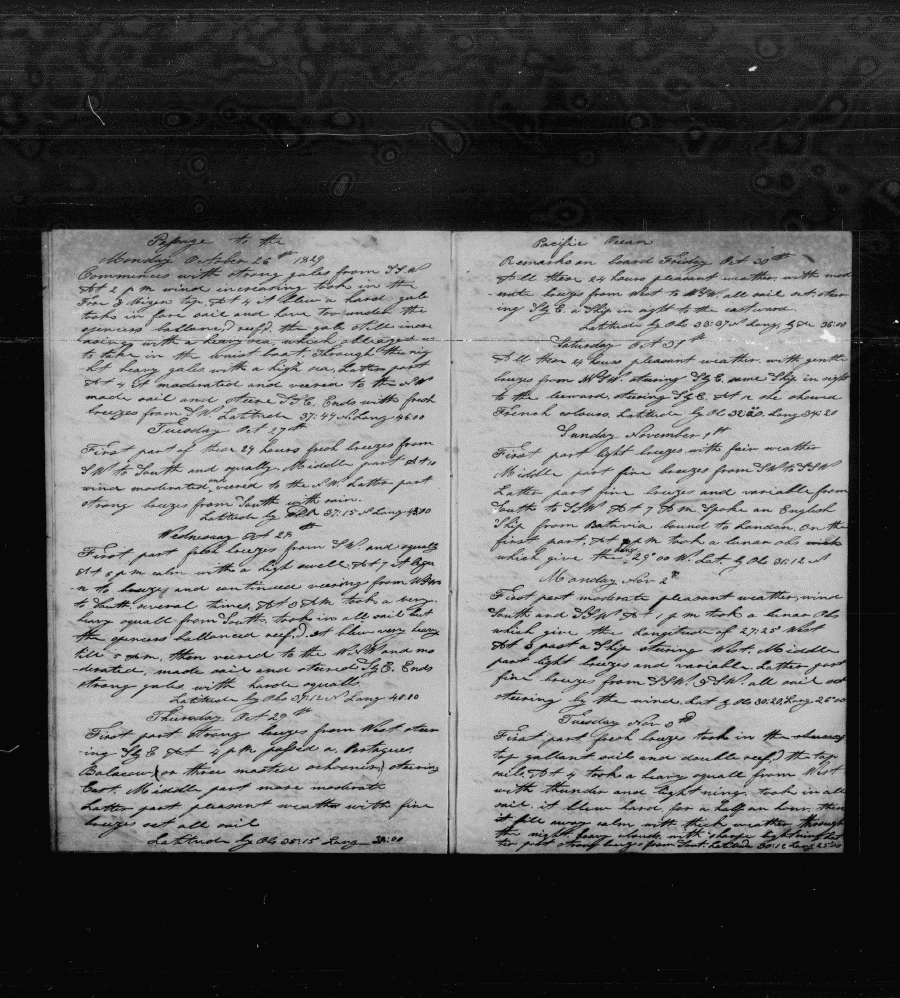 Passage to the
Monday October 26th 1829
Commences with strong gales from SSW
At 2 p m wind increasing took in the
Fore & Mizen top, At 4 it blew a hard gale
took in fore sail and hove too under the
spencers ballanc,d reef,d, the gale still incre
asing with a heavy sea, which obliged us
to take in the waist boat, through the nig
ht heavy gales with a high sea, Latter part
At 4 it moderated and veered to the S,W
made sail and steered S,E, Ends with fresh
breezes from S W, Latitude 37:47 N, Long 46 00
Tuesday Oct 27th
First part of these 24 hours fresh breezes from
SW to South and squally. Middle part At 10
wind moderated and veered to the S,W. Latter part
strong breezes from South with rain.
Latitude by 37:15 N Long 43:00
Wednesday Oct 28th
First part breezes from S,W. and squally
At 5 p m calm with a high swell, At 7 it began
to breeze and continued veering from WSW
to South several times, At 3 AM took a very
heavy squall from South, took in all sail but
the spencers ballanced reef,d, it blew very heavy
till 5 AM, then veered to the W,SW and mo
-derated, made sail and steered S by E. Ends
strong gales with hard squalls
Latitude by Obs 37:12 N Long 40:10
Thursday Oct 29th
First part strong breezes from West steer
-ing S by E At 4 p m passed a Portugues,
(or three masted schooner) steering
East. Middle part more moderate
Latter part pleasant weather with fine
breezes set all sail
Latitude by Obs 35:15 Long :00
Pacific Ocean
Remarks on board Friday Oct 30th
All these 24 hours pleasant weather, with mod
-erate breezes from West to WSW, all sail set, steer
ing S by E, a Ship in sight to the eastward.
Latitude by Obs 33:37 N Long, by 36:00
Saturday Oct 31st
All these 24 hours pleasant weather, with gentle
breezes from WSW. steering S by E. same Ship in sight
to the leeward, steering S by E, At 2 she showed
French colours, Latitude by Ob 32 Long 34:20
Sunday November 1st
First part light breezes with fair weather
Middle part fine breezes from SW to SSW
Latter part fine breezes and variable from
South to SSW At 7 A m Spoke an English
Ship from Batavia bound to London, On the
first part, At p m took a lunar obs
which give the Long 29° 00 W. Lat. by Obs 31:12 N
Monday Nov 2d
First part moderate pleasant weather, wind
South and SSW At p m took a lunar Obs
which give the Longitude of 27:25 West
At 3 past a Ship steering West, Middle
part light breezes and variable, Latter part
fine breezes from SSW, & SW, all sail set
steering by the wind, Lat by Obs 30:20, Long 26
Tuesday Nov 3d
First part fresh breezes took in the
top gallant sails and double reef,d the top
sails, At 4 took a heavy squall from West
with thunder and lightning, took in all
sail, it blew hard for a half an hour, then
it fell away calm with thick weather, through
the night heavy clouds, with sharp lightning, Lat
ter part strong breezes from Latitude 30:12 Long 25:00